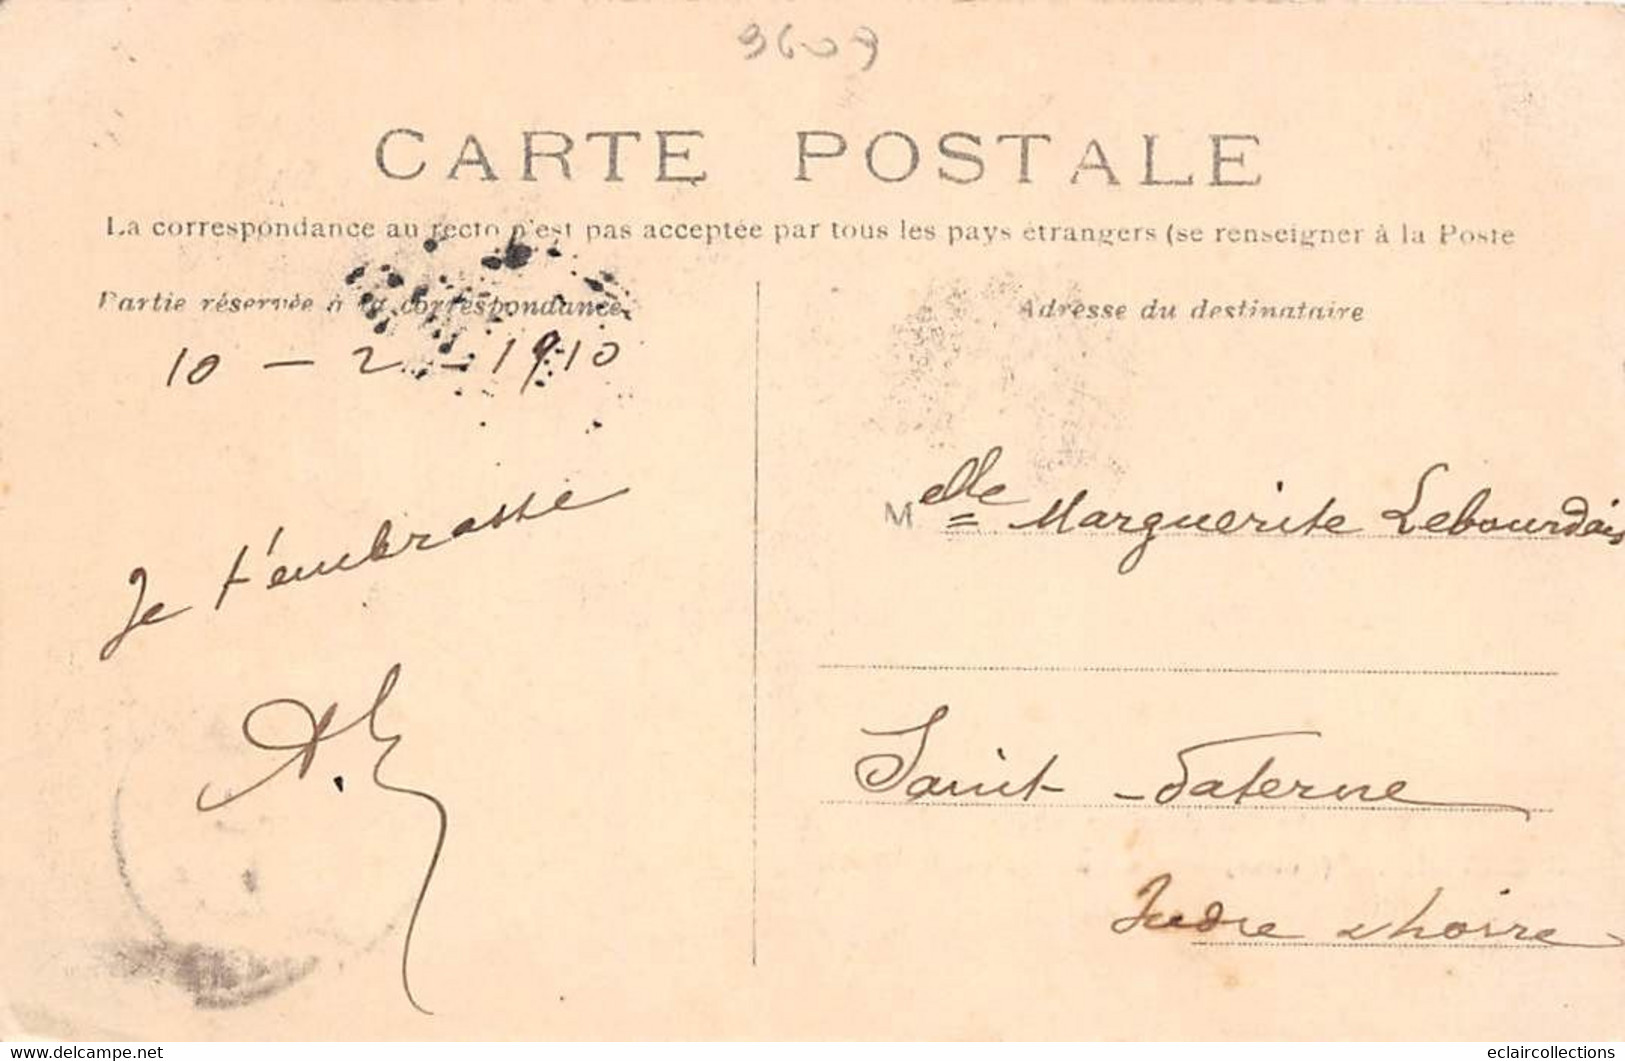 3609
CARTE POSTALE
La correspondance au recto n'est pas acceptée par tous les pays étrangers (se renseigner à la Poste
Partie réservée à la correspondance
Adresse du destinataire
10 - 2 - 1910
Je t'embrasse
Melle Marguerite Lebourdais
Saint-Paterne
Indre & Loire
eclaircollections